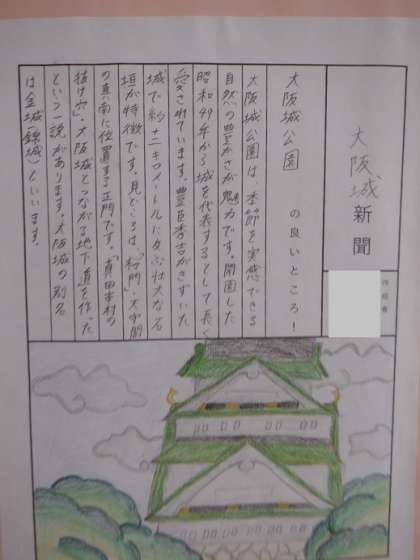 大阪城新聞
作成者
大阪城公園の良いところ！
大阪城公園は、季節を実感できる
自然の豊かさが魅力です。開園した
昭和49年から城を代表するとして長く
愛されています。豊臣秀吉がきずいた
城で約十二キロメートルに及ぶ壮大な石
垣が特徴です。見どころは、「桜門」、大手門
の真南に位置する正門です。「真田幸村の
抜け穴」・大阪城とつながる地下道を作った
という一説があります。大阪城の別名
は金城(錦城)といいます。